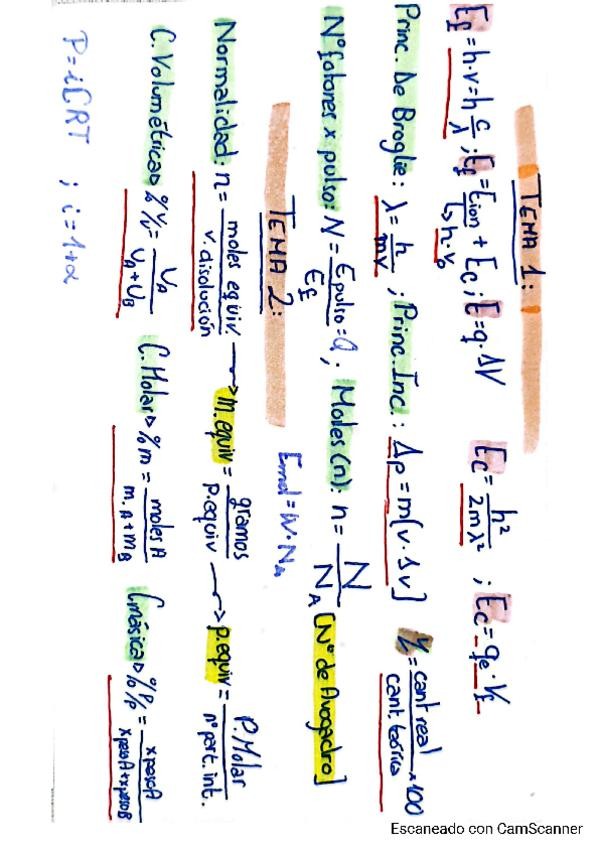 TEMA 1:
E_f = h·ν = h c/λ ; E_f = E_ion + E_c ; E = q·ΔV    E_c = h²/2mλ² ; E_c = q_e·V_f
↳ h·ν₀
Princ. De Broglie: λ = h/mv ; Princ. Inc.: Δp = m(v·Δv]    η = cant real/cant. teórica × 100
Nº fotones x pulso: N = E pulso = Q/E_f ; Moles (n): n = N/N_A [Nº de Avogadro]
E mol = W·N_A
TEMA 2:
Normalidad: n = moles equiv/v. disolución → m.equiv = gramos/p.equiv → p.equiv = P.Molar/nº part. int.
C. Volumétrica▷ % v/v = V_A/V_A + V_B    C. Molar▷ % m = moles A/m. A + m_B    C. másica▷ % P/P = x peso A/x peso A + x peso B
P = i C R T ; i = 1 + α
Escaneado con CamScanner